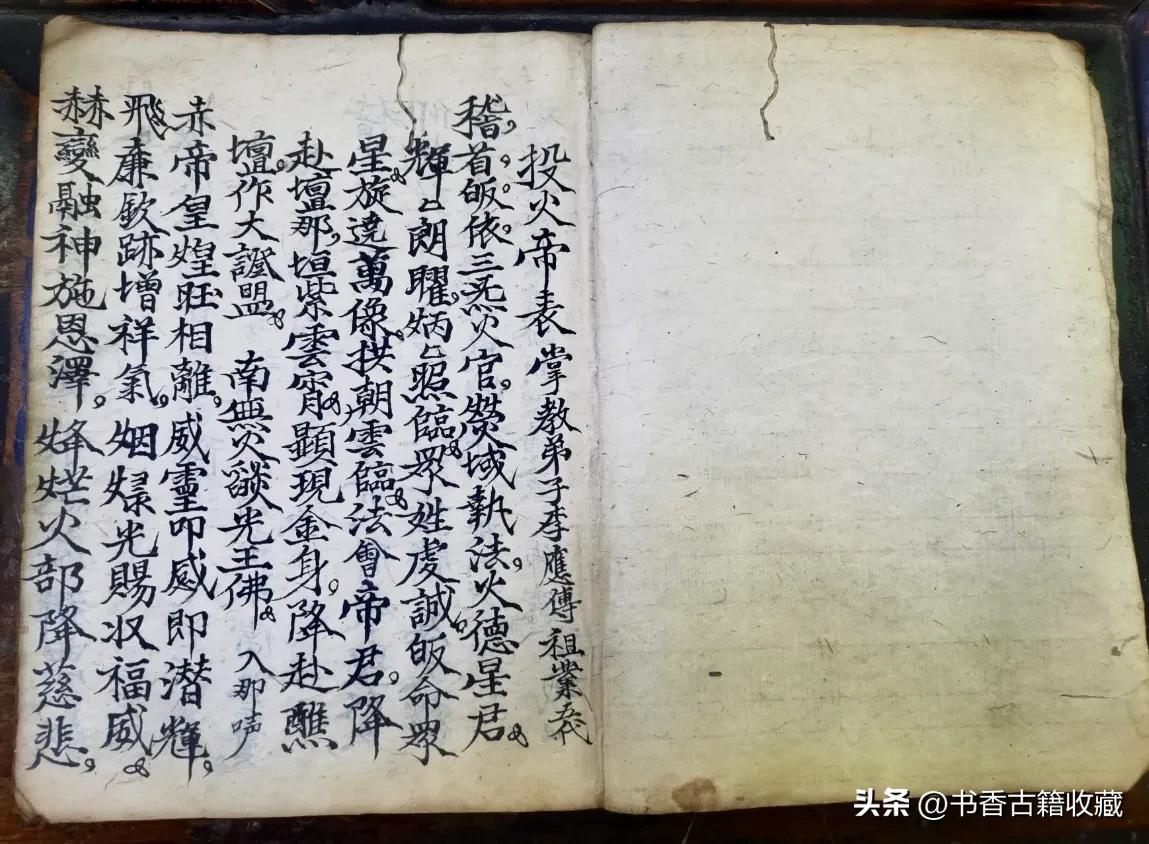 投火帝表 掌教弟子李應傳 祖業五代
稽首皈依三炁火官熒域執法火德星君
輝〻朗曜炳〻照臨眾姓虔誠皈命眾
星旋遶萬像拱朝雲臨法會帝君降
赴壇那垣紫雲霄顯現金身降赴醮
壇作大證盟 南無火談光王佛 入那吽
赤帝皇煌旺相離威靈叩感即潛輝
飛廉欽跡增祥氣烟光賜収福威
赫變融神施恩澤火部降慈悲
头条 @书香古籍收藏